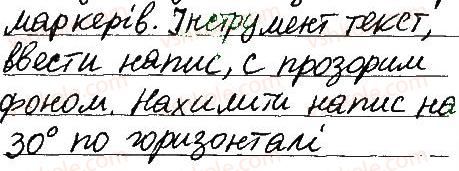 маркерів. Інструмент текст,
ввести напис, с прозорим
фоном. Нахилити напис на
30° по горизонталі